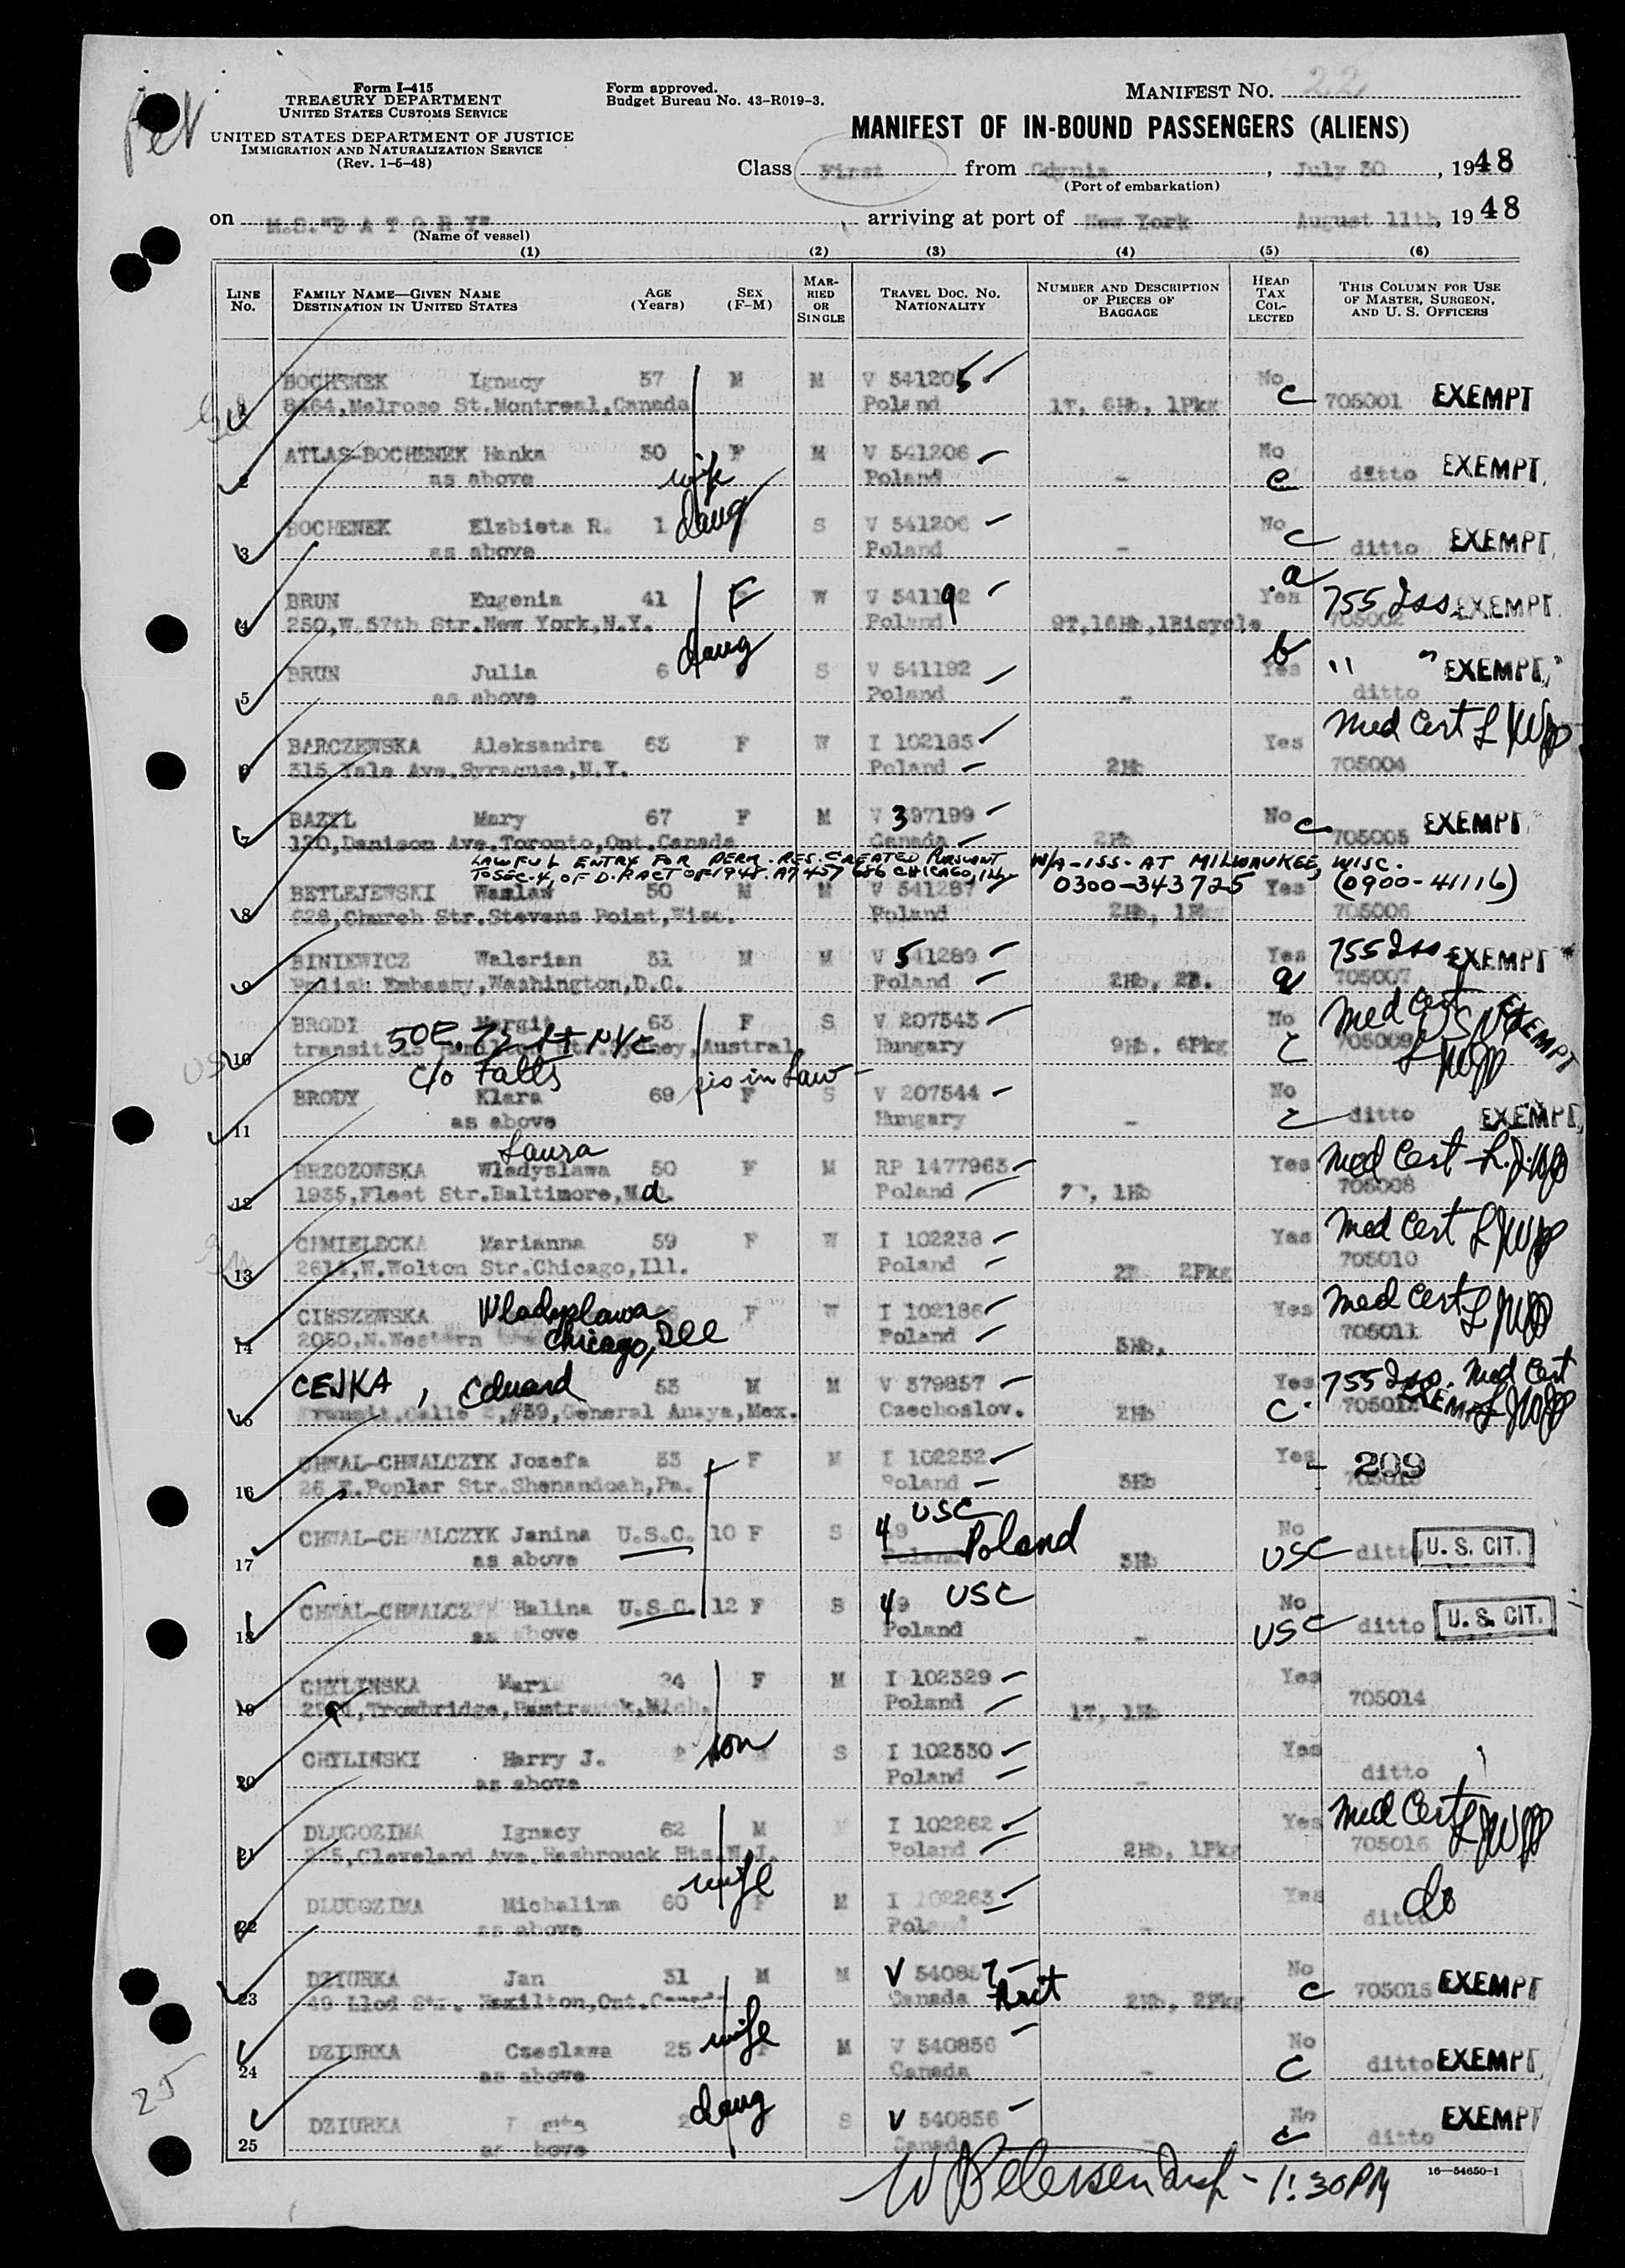 Form I-415
TREASURY DEPARTMENT
UNITED STATES CUSTOMS SERVICE
UNITED STATES DEPARTMENT OF JUSTICE
IMMIGRATION AND NATURALIZATION SERVICE
(Rev. 1-5-48)
Form approved.
Budget Bureau No. 43-R019-3.
MANIFEST NO. 22
MANIFEST OF IN-BOUND PASSENGERS (ALIENS)
Class First from Gdynia, July 30, 1948
(Port of embarkation)
on M.S."BATORY" arriving at port of New York August 11th, 1948
(Name of vessel)
(1) (2) (3) (4) (5) (6)
LINE NO. FAMILY NAME—GIVEN NAME DESTINATION IN UNITED STATES AGE (Years) SEX (F-M) MARRIED OR SINGLE TRAVEL DOC. NO. NATIONALITY NUMBER AND DESCRIPTION OF PIECES OF BAGGAGE HEAD TAX COLLECTED THIS COLUMN FOR USE OF MASTER, SURGEON, AND U. S. OFFICERS
BOCHENEK Ignacy 37 M M V 541205 No
8464,Melrose St.Montreal,Canada Poland 1T, 6Hb, 1Pkg c 705001 EXEMPT
ATLAS-BOCHENEK Hanka 30 F M V 541206 No
2 as above wife Poland - c ditto EXEMPT
BOCHENEK Elzbieta R. 1 daug S V 541206 No
3 as above Poland - c ditto EXEMPT
BRUN Eugenia 41 F W V 541192 a Yes 755 Iss. EXEMPT
4 250,W.57th Str.New York,N.Y. Poland 9T,16Hb,1Bicycle 705002
BRUN Julia 6 daug S V 541192 b Yes " " EXEMPT
5 as above Poland - ditto
BARCZEWSKA Aleksandra 63 F W I 102185 Yes Med Cert
6 315 Yale Ave.Syracuse,N.Y. Poland 2Hb 705004
BAZYL Mary 67 F M V 397199 No c EXEMPT
7 120,Denison Ave.Toronto,Ont.Canada Canada 2Hb 705005
LAWFUL ENTRY FOR PERM. RES. CREATED PURSUANT W/A-ISS. AT MILWAUKEE, WISC.
TO SEC. 4, OF D.P. ACT OF 1948. A7 457 686 CHICAGO, ILL 0300-343725 (0900-41116)
BETLEJEWSKI Waclaw 50 M M V 541287 Yes
8 628,Church Str.Stevens Point,Wisc. Poland 2Hb, 1Pkg 705006
BINIEWICZ Walerian 31 M M V 541289 Yes 755 Iss EXEMPT
9 Polish Embassy,Washington,D.C. Poland 2Hb, 2B. a 705007
BRODY Margit 63 F S V 207543 No Med Cert EXEMPT
10 transit,15 Hamilton Str.Sydney,Austral. 50 E. 73 St NYC Hungary 9Hb, 6Pkg c 705009
c/o Falls sis in Law
BRODY Klara 69 F S V 207544 No
11 as above Hungary - c ditto EXEMPT
Laura
BRZOZOWSKA Wladyslawa 50 F M RP 1477963 Yes Med Cert
12 1935,Fleet Str.Baltimore,Md. Poland 1Hb 705008
CHMIELECKA Marianna 59 F W I 102238 Yes Med Cert
13 2614,W.Wolton Str.Chicago,Ill. Poland 2Pkg 705010
CIESZEWSKA Wladyslawa F W I 102186 Yes Med Cert
14 2050,N.Western Chicago, Ill Poland 3Hb. 705011
CEJKA, Eduard 53 M M V 379857 Yes 755 Iss. Med Cert
15 Transit,Calle #39,General Anaya,Mex. Czechoslov. 2Hb c. EXEMPT
CHWAL-CHWALCZYK Jozefa 33 F M I 102232 Yes 209
16 26 E.Poplar Str.Shenandoah,Pa. Poland 3Hb
CHWAL-CHWALCZYK Janina U.S.C. 10 F S 49 USC No
17 as above Poland 3Hb USC ditto U. S. CIT.
CHWAL-CHWALCZYK Halina U.S.C. 12 F S 49 USC No
18 as above Poland - USC ditto U. S. CIT.
CHYLINSKA Maria 24 F M I 102329 Yes
19 Trowbridge,Hamtramck,Mich. Poland 1T, 1Hb 705014
CHYLINSKI Harry J. son S I 102330 Yes
20 as above Poland - ditto
DLUGOZIMA Ignacy 62 M I 102262 Yes Med Cert
21 Cleveland Ave.Hasbrouck Hts.N.J. Poland 2Hb, 1Pkg 705016
DLUGOZIMA Michalina 60 wife M I 102263 Yes do
22 as above Poland - ditto
DZIURKA Jan 31 M M V 540857 No
23 49 Llod Str. Hamilton,Ont.Canada Canada Brit 2Hb, 2Pkg c 705015 EXEMPT
DZIURKA Czeslawa 25 wife M V 540856 No
24 as above Canada - c ditto EXEMPT
DZIURKA 2 daug S V 540856 No EXEMPT
25 as above Canada - c ditto
25
W Petersen Insp - 1:30 PM
16—54650-1